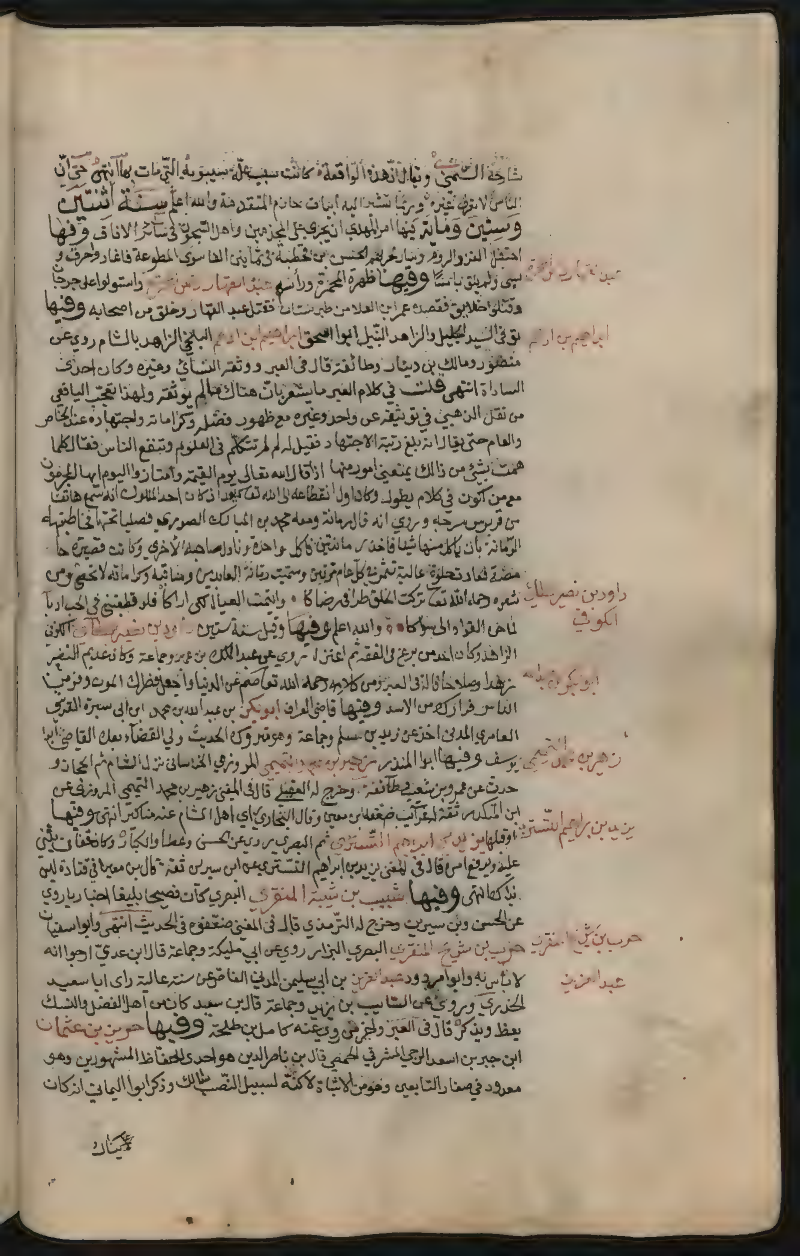 شارحه الشمني ويقال ان هذه الواقعة كانت سبب علة سيبويه التي مات بها انتهى حتى ان
الناس وربما تنشد اليه ابيات حازم المتقدمة والله اعلم سنة اثنتين
وستين ومائة فيها امر المهدي ان يجرى على المجذمين واهل السجون في سائر الافاق وفيها
احتفل لغزو الروم وسار لحربهم الحسن بن قحطبة في ثمانين الفا سوى المطوعة فاغار واحرق و
سبى ولم يلق باسا وفيها ظهرة المحمرة ورأسهم عبد القهار واستولوا على جرجان
عبد القهار
وقتلوا خلايق فقصده عمر ابن العلا من طبرستان فقتل عبد القهار وخلق من اصحابه وفيها
توفي السيد الجليل والزاهد النبيل ابو اسحق ابراهيم ابن ادهم البلخي الزاهد بالشام روى عن
ابراهيم بن ادهم
منصور ومالك بن دينار وطائفة قال في العبر ووثقه النسائي وغيره وكان احد
الساداة انتهى قلت في كلام العبر ما يشعر بان هناك من لم يوثقه ولهذا تعجب اليافعي
من نقل الذهبي في توثيقه عن واحد وغيره مع ظهور فضله وكراماته واجتهاده عند الخاص
والعام حتى يقال انه بلغ رتبة الاجتهاد فقيل له لم لم تتكلم في العلوم وتنفع الناس فقال كلما
هممت بشيء من ذالك يمنعني امور منها اذا قال الله تعالى يوم القيمة وامتازوا اليوم ايها المجرمون
مع من اكون في كلام يطول وكان اول انقطاعه الى الله تعالى بعد ان كان احد الملوك انه سمع هاتفا
من قربوس سرجه وروي انه قال رمانة ومعه محمد بن المبارك الصوري فصليا تحتها فخاطبتهما
الرمانة بان ياكلا منها شيا فاخذ رمانتين فاكل واحدة وناول صاحبه الاخرى وكانت قصيرة حا
مضة فعادت حلوة عالية تثمر في كل عام مرتين وسميت رمانة العابدين ومناقبه وكراماته لا تحصى ومن
شعره رحمه الله تعالى تركت الخلق طرا في رضاكا وايتمت العيال لكي اراكا فلو قطعتني في الحب اربا
داود بن نصير
الكوفي
لما حن الفؤاد الى سواكا والله اعلم وفيها وقيل سنة ستين داود بن نصير الكوفي
الزاهد وكان احد من برع في الفقه ثم اعتزل روى عن عبد الملك بن عمير وجماعة وكان عديم النظير
زهدا وصلاحا قاله في العبر ومن كلامه رحمه الله تعالى صم عن الدنيا واجعل فطرك الموت وفر من
ابو بكر بن
الناس فرارك من الاسد وفيها قاضي العراق ابو بكر بن عبد الله بن محمد ابن ابي سبرة القرشي
العامري المدني اخذ عن زيد بن اسلم وجماعة وهو متروك الحديث ولي القضاء بعده القاضي ابو
يوسف وفيها ابو المنذر زهير بن محمد التميمي المروزي الخراساني نزل الشام ثم الحجاز و
زهير بن التميمي
حدث عن عمرو بن شعيب وطائفة وخرج له العقيلي قال في المغني زهير بن محمد التميمي المروزي عن
ابن المنكدر ثقة له غرائب ضعفه ابن معين وقال البخاري اهل الشام عنه مناكير انتهى وفيها
او قبلها يزيد بن ابراهيم التستري ثم البصري روى عن الحسن وعطا والكبار وكان عفان يثني
يزيد بن ابراهيم التستري
عليه ويرفع امره قال في المغني يزيد بن ابراهيم التستري عن ابن سيرين ثقة قال بن معين في قتادة ليس
بذاك انتهى وفيها شبيب بن شيبة المنقري البصري كان فصيحا بليغا اخباريا روى
عن الحسن وبن سيرين وخرج له الترمذي قال في المغني ضعفوه في الحديث انتهى وابو سفيان
حرب بن سريج المنقري البصري البزار روى عن ابي مليكة وجماعة قال ابن عدي ارجوا انه
حرب بن سريج المنقري
لا باس به وابو مودود عبد العزيز بن ابي سليمن المدني القاص عن سنه عالية راى ابا سعيد
عبد العزيز
الخدري وروى عن السايب بن يزيد وجماعة قال بن سعيد كان من اهل الفضل والنسك
يعظ ويذكر قال في العبر واخر من روى عنه كامل بن طلحة وفيها حريز بن عثمان
ابن جبر بن اسعد الرحبي المشرقي الحمصي قال بن ناصر الدين هو احدى الحفاظ المشهورين وهو
معدود في صغار التابعين وهو من الاثباة لاكنه لسبيل النصب سالك وذكر ابوا اليماني انه كان